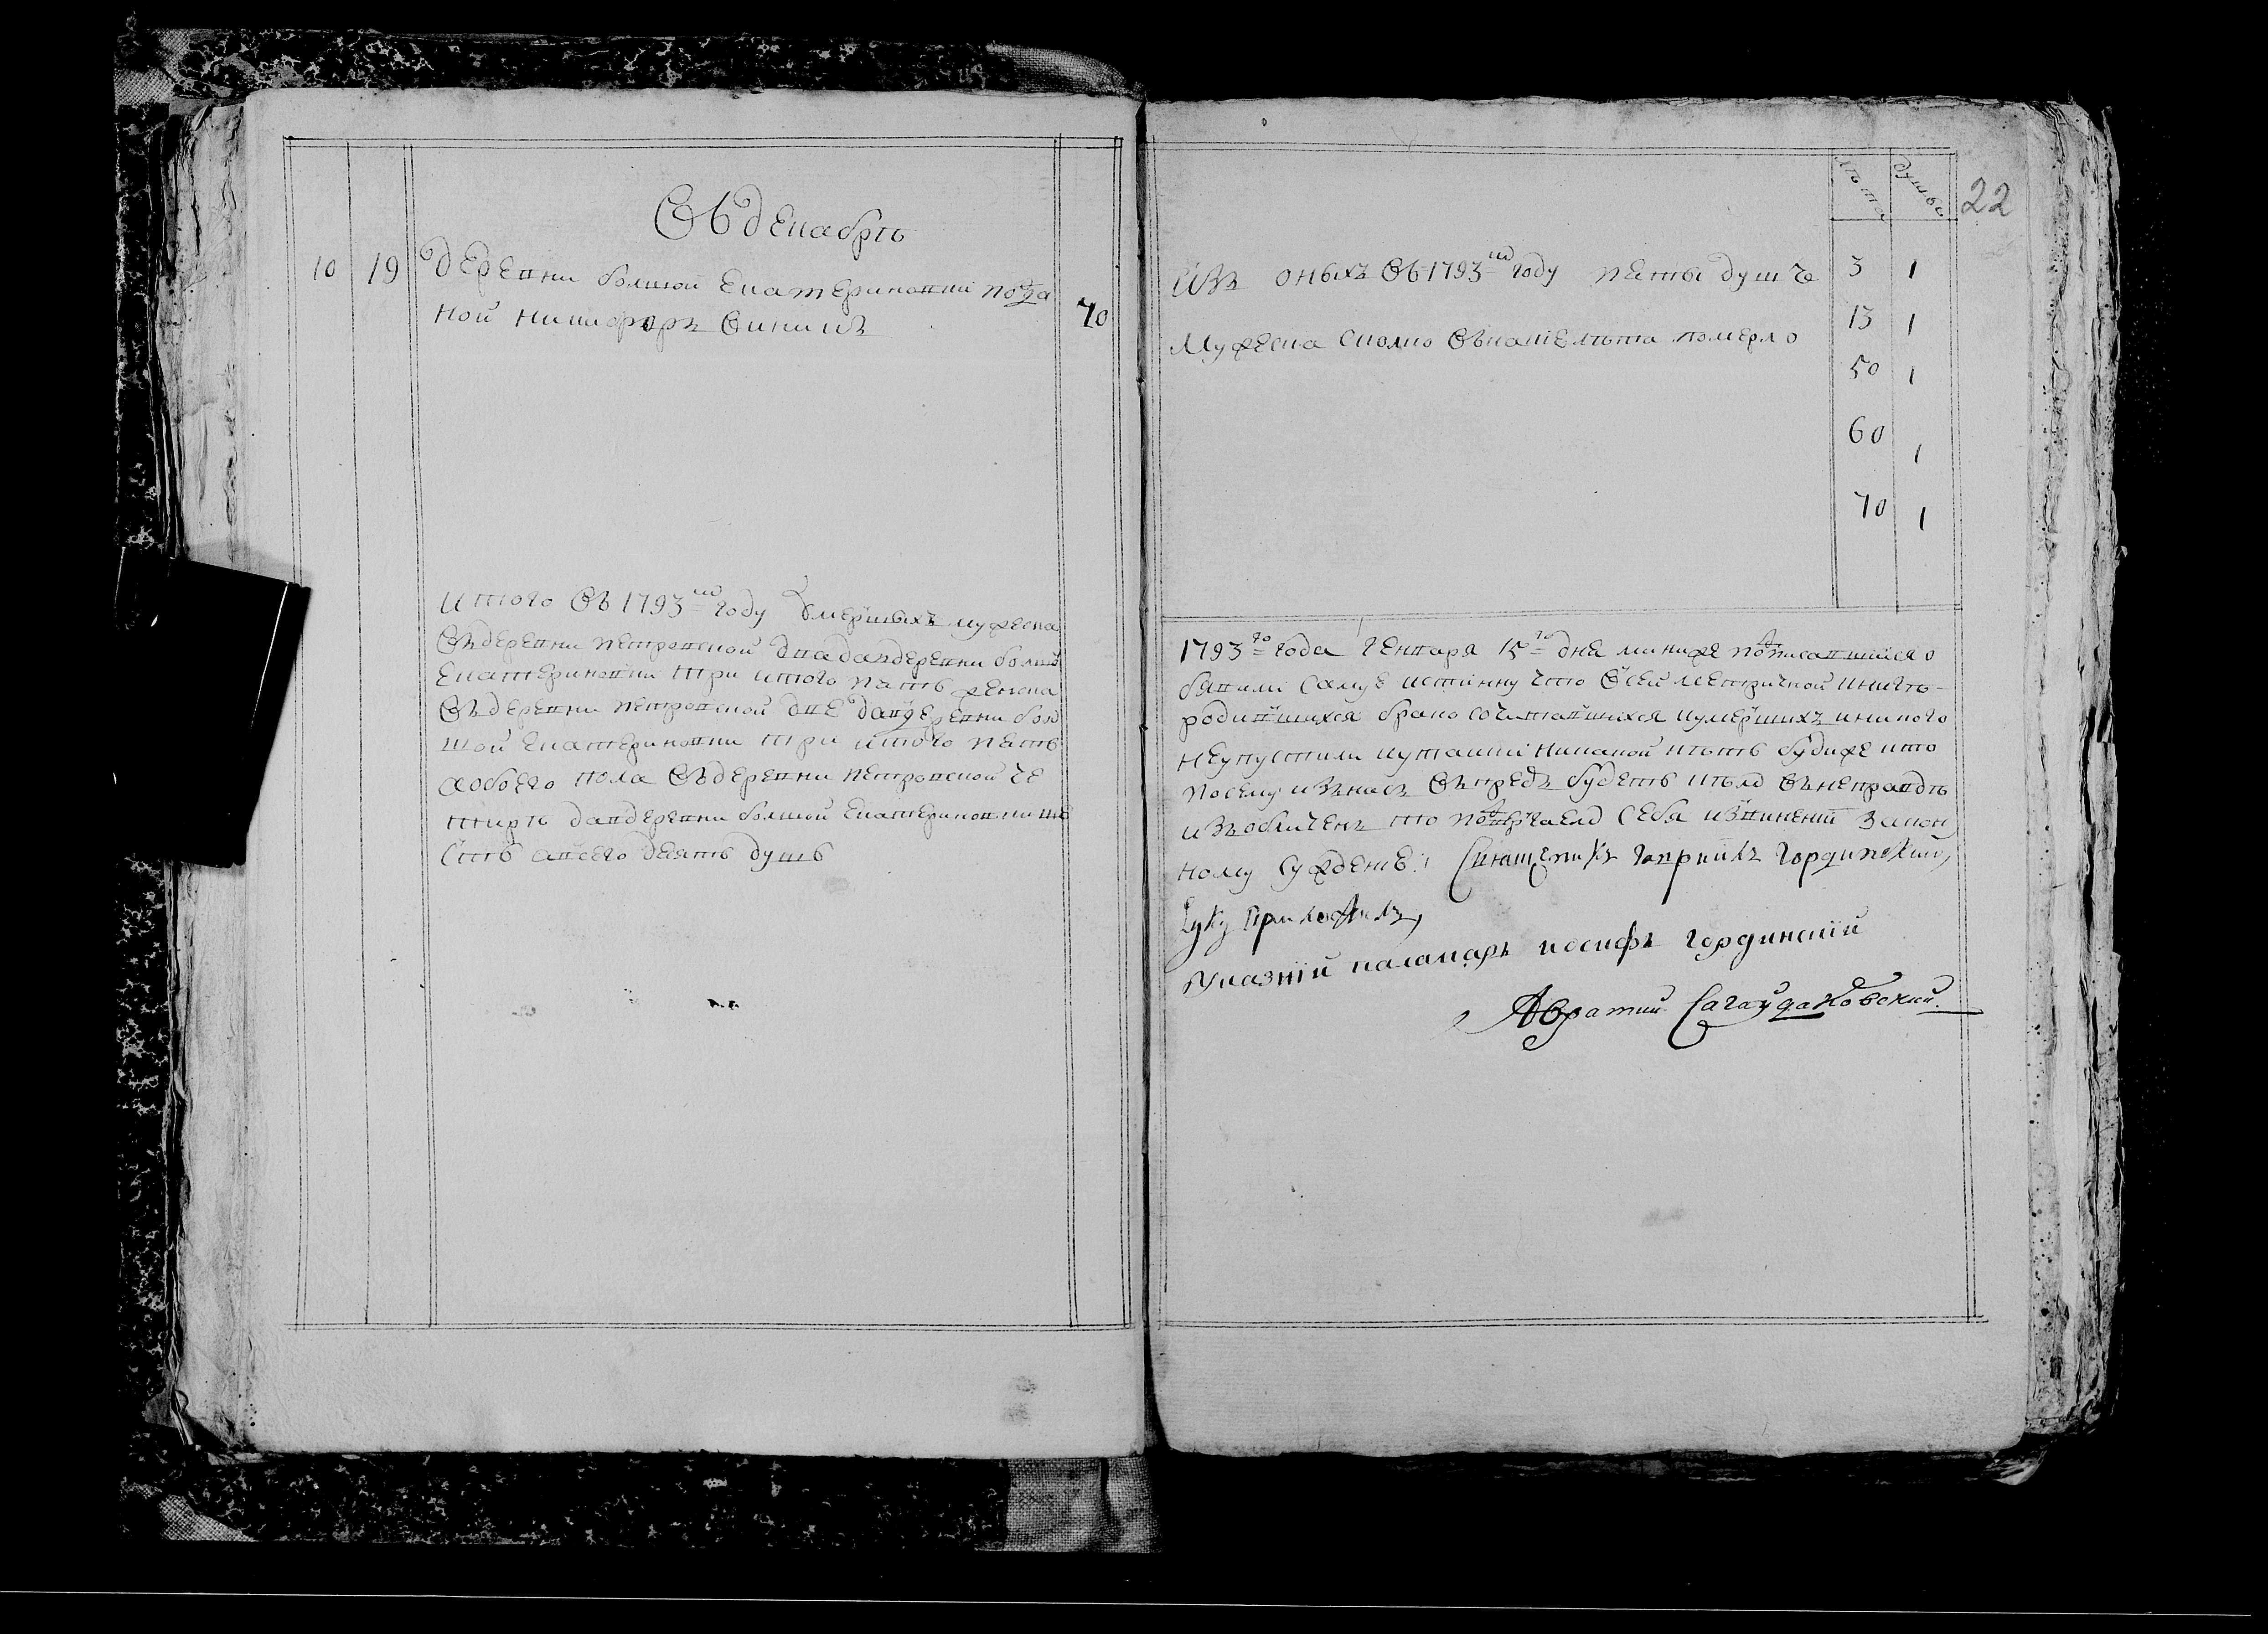 Въ декабрѣ
10 19 деревни болшой Екатериновки подда
ной Никифоръ Синицъ 70
Итого въ 1793 м году умершыхъ мужеска
въ деревни Петровской два да въ деревни болшо
Екатериновки три итого пять женска
въ деревни Петровской две да в деревни бол
шой Екатериновки три итого пять
а обоего пола въ деревни Петровской че
тирѣ да в деревни болшой Екатериновки ше
сть а всего десять душъ
лѣта душъ 22
Изъ оныхъ въ 1793 м году пяты душъ
Мужеска сколко въ какие лѣта померло
3 1
13 1
50 1
60 1
70 1
1793 го года Генваря 15 го дня мы ниже подписавшийся о
бявили самую истинну что в сей метричной книгѣ
родившихся брако сочитавшихся и умершихъ и никого
не упустили и утаики никакой нѣтъ буди же кто
по сему из насъ въпредъ будетъ въ неправдѣ
изобличенъ то подвергаем себя закон
ному суждению Священикъ Гордински
руку приложилъ
Указний паламаръ Иосифъ Гординский
Сагайдаковский